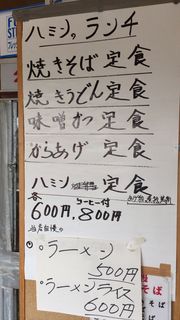 ハミング ランチ
焼きそば 定食
焼きうどん 定食
味噌カツ 定食
からあげ 定食
ハミング 定食
各 コーヒー付
600円, 800円
当店自慢の
ラーメン
500円
ラーメンライス
600円